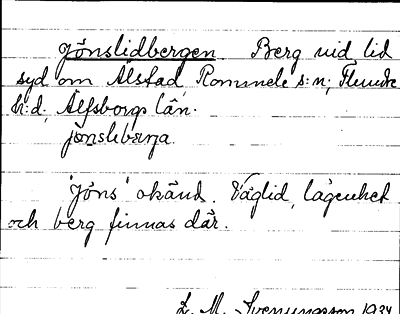 Jönslidbergen. Berg vid lid
syd om Älstad, Rommele s:n, Flundre
h:d, Älfsborgs län.
jönslibærja.
"Jöns" okänd. Väglid, lägenhet
och berg finnas där.
L. M. Svenungsson 1934